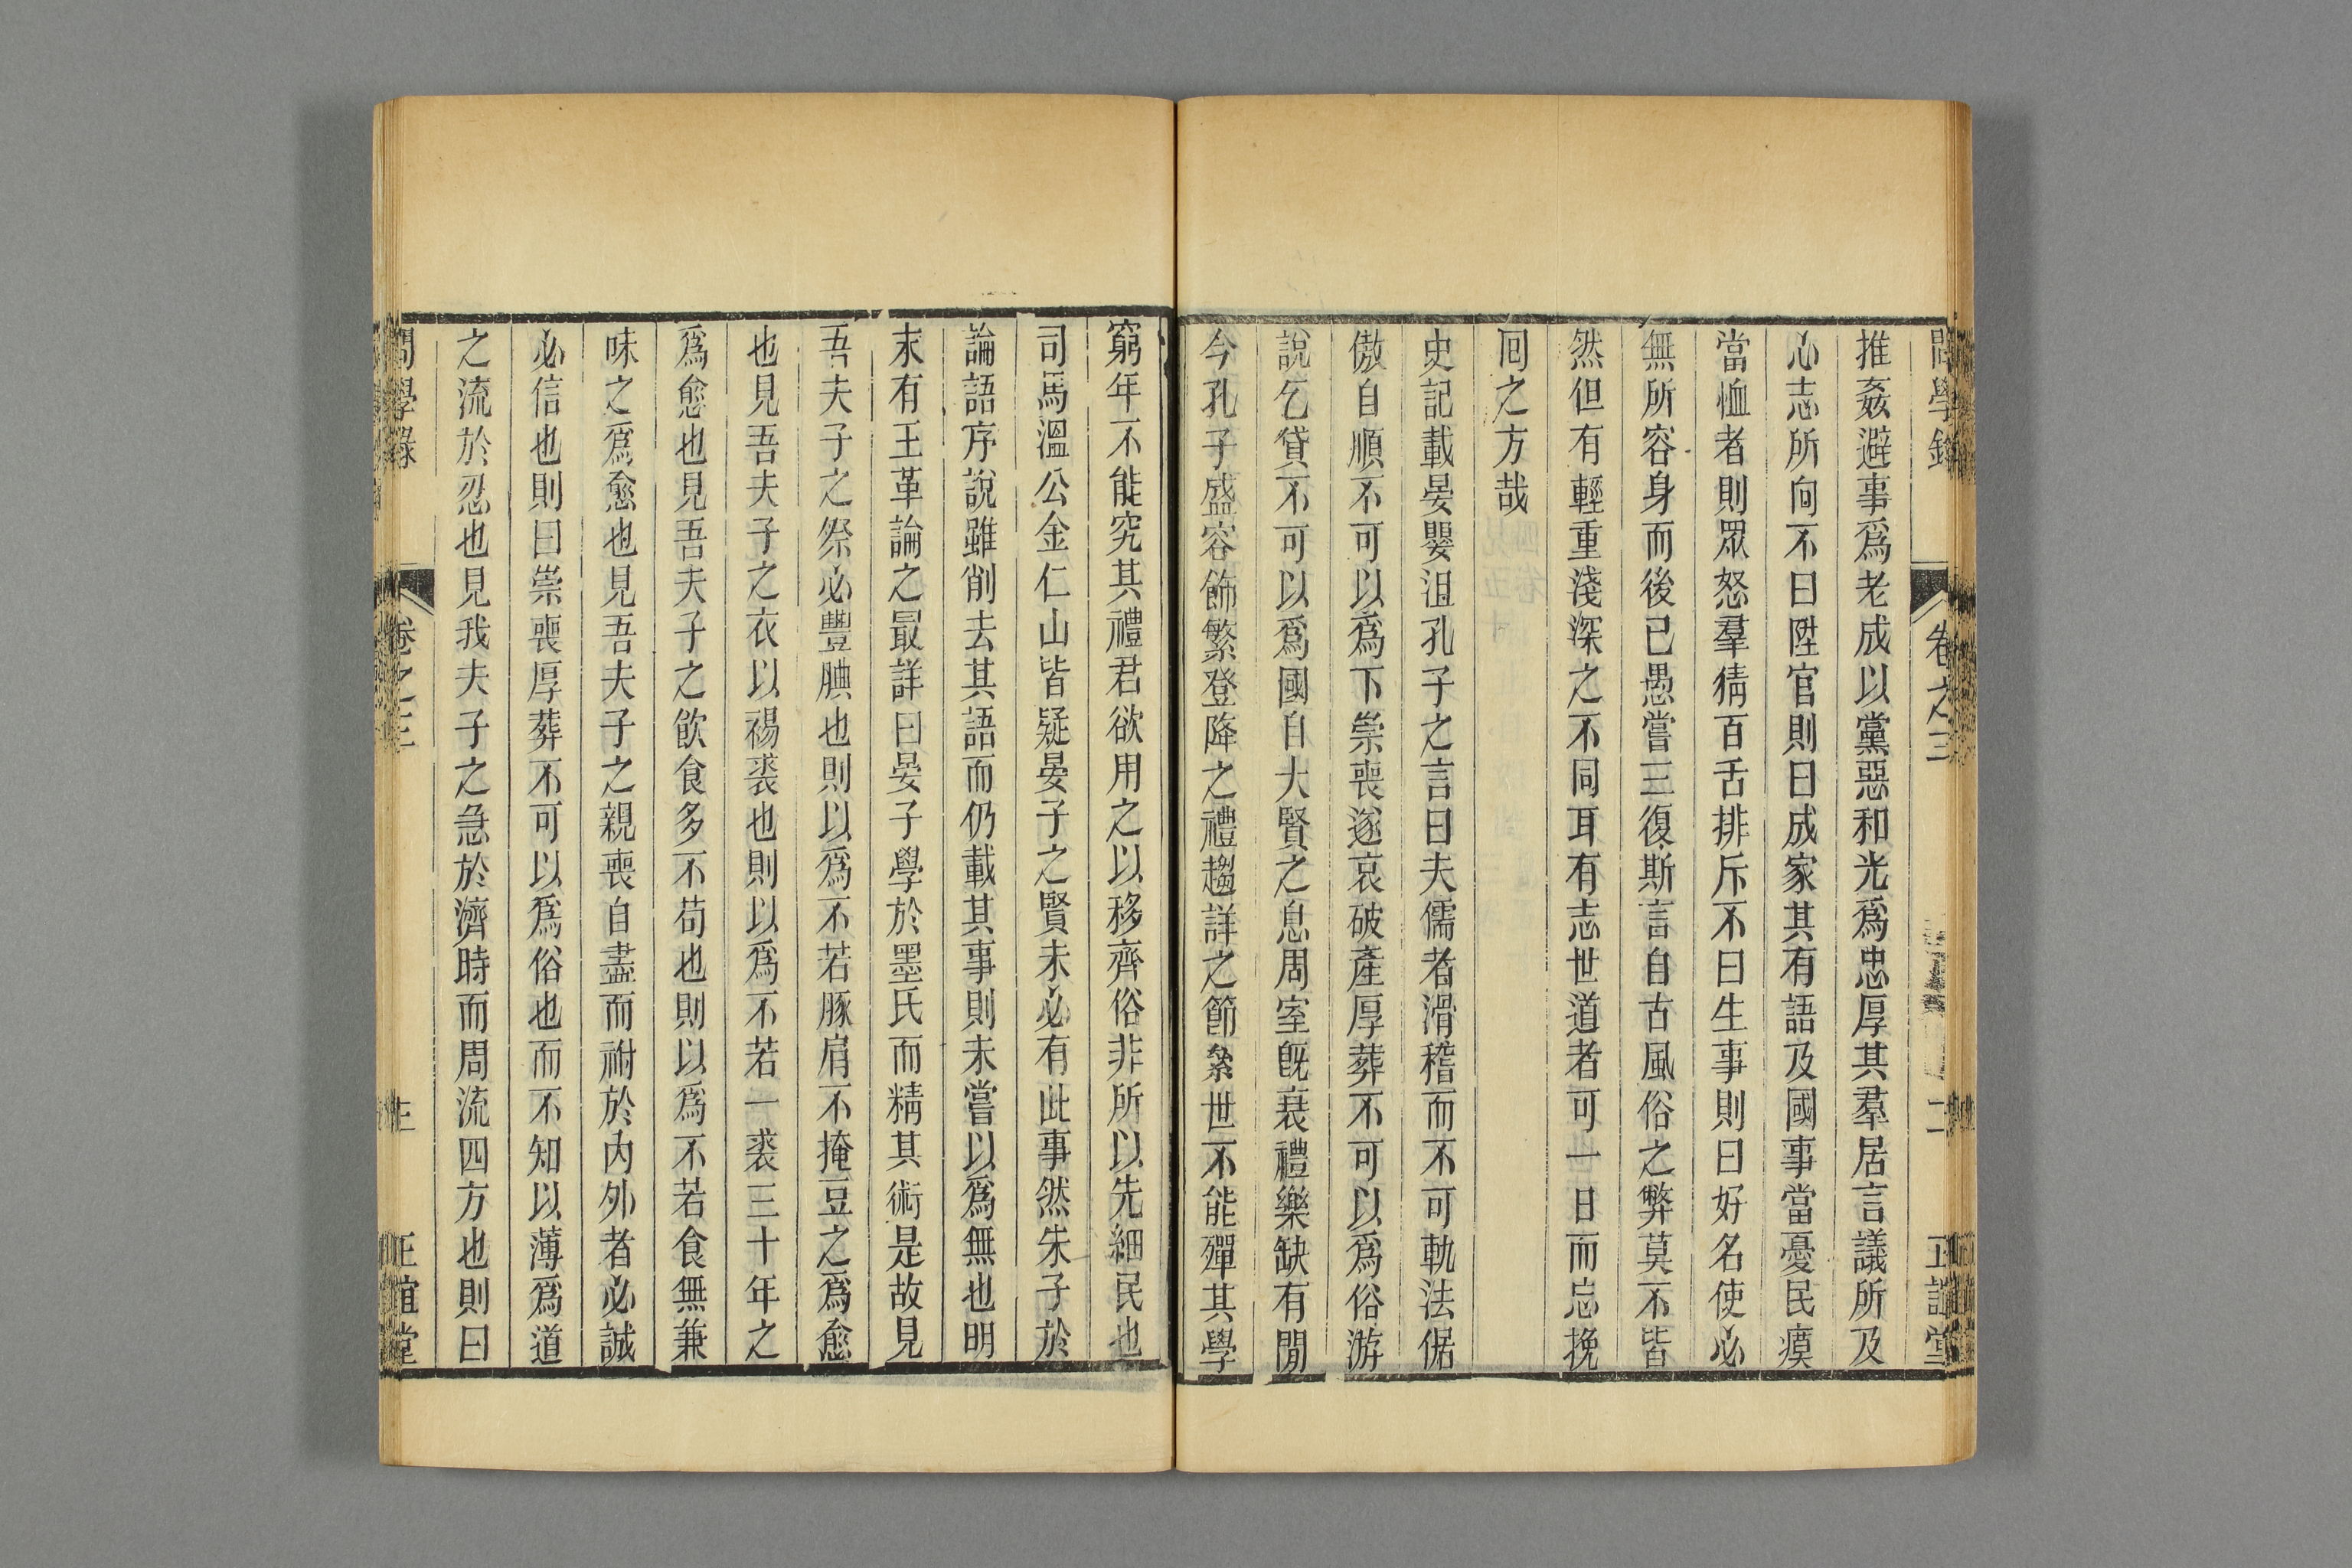 問學錄 卷之三 二 正誼堂
推姦避事爲老成以黨惡和光爲忠厚其羣居言議所及
心志所向不曰陞官則曰成家其有語及國事當憂民瘼
當恤者則眾怒羣猜百舌排斥不曰生事則曰好名使必
無所容身而後已愚嘗三復斯言自古風俗之弊莫不皆
然但有輕重淺深之不同耳有志世道者可一日而忘挽
囘之方哉
史記載晏嬰沮孔子之言曰夫儒者滑稽而不可軌法倨
傲自順不可以爲下崇喪遂哀破產厚葬不可以爲俗游
說乞貸不可以爲國自大賢之息周室旣衰禮樂缺有閒
今孔子盛容飾繁登降之禮趨詳之節絫世不能殫其學
窮年不能究其禮君欲用之以移齊俗非所以先細民也
司馬溫公金仁山皆疑晏子之賢未必有此事然朱子於
論語序說雖削去其語而仍載其事則未嘗以爲無也明
末有王革論之最詳曰晏子學於墨氏而精其術是故見
吾夫子之祭必豐腆也則以爲不若豚肩不掩豆之爲愈
也見吾夫子之衣以裼裘也則以爲不若一裘三十年之
爲愈也見吾夫子之飲食多不苟也則以爲不若食無兼
味之爲愈也見吾夫子之親喪自盡而祔於內外者必誠
必信也則曰崇喪厚葬不可以爲俗也而不知以薄爲道
之流於忍也見我夫子之急於濟時而周流四方也則曰
問學錄 卷之三 正誼堂